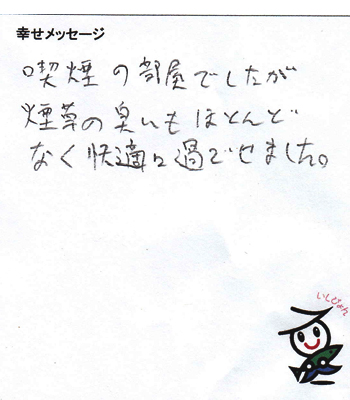 幸せメッセージ
喫煙の部屋でしたが
煙草の臭いもほとんど
なく快適に過ごせました。
いしぴょん